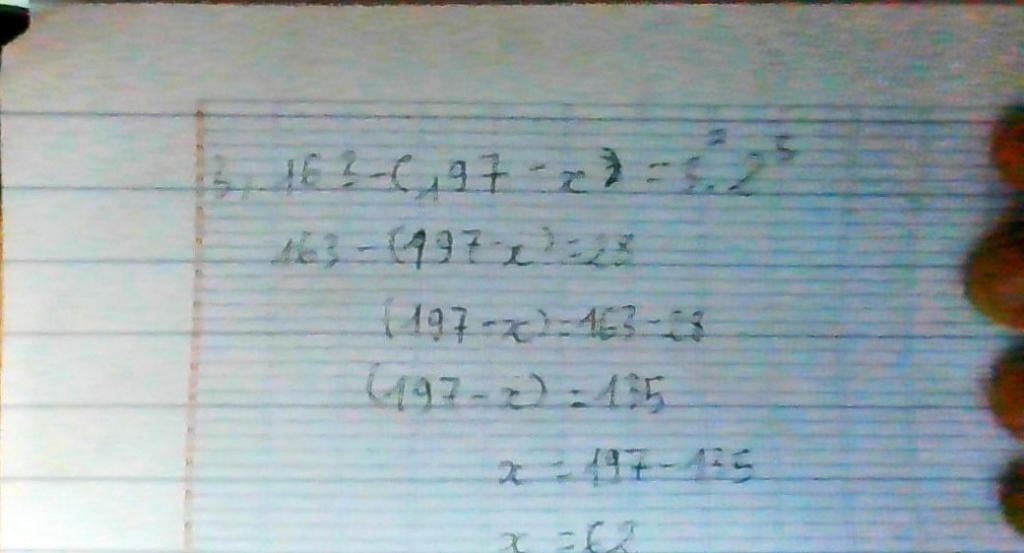 163-(197-x)=5².2⁵
163-(197-x)=28
(197-x)=163-28
(197-x)=135
x=197-135
x=62